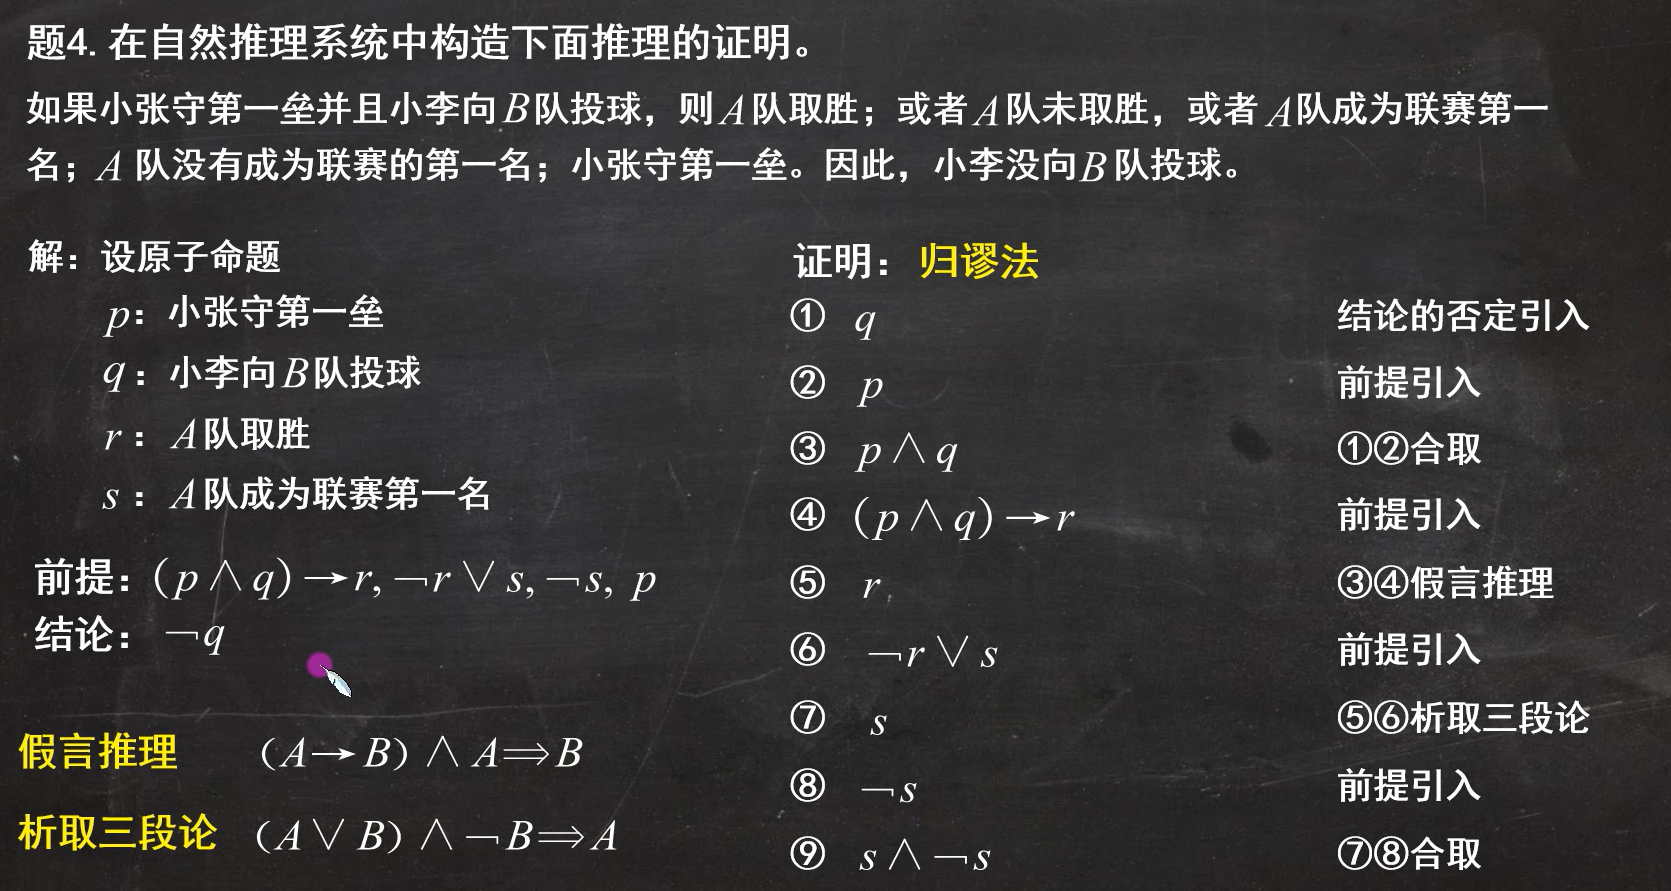 题4. 在自然推理系统中构造下面推理的证明。
如果小张守第一垒并且小李向B队投球，则A队取胜；或者A队未取胜，或者A队成为联赛第一
名；A 队没有成为联赛的第一名；小张守第一垒。因此，小李没向B队投球。
解：设原子命题
p：小张守第一垒
q：小李向B队投球
r：A队取胜
s：A队成为联赛第一名
前提：(p∧q)→r, ¬r∨s, ¬s, p
结论：¬q
假言推理 (A→B)∧A⟹B
析取三段论 (A∨B)∧¬B⟹A
证明：归谬法
① q 结论的否定引入
② p 前提引入
③ p∧q ①②合取
④ (p∧q)→r 前提引入
⑤ r ③④假言推理
⑥ ¬r∨s 前提引入
⑦ s ⑤⑥析取三段论
⑧ ¬s 前提引入
⑨ s∧¬s ⑦⑧合取